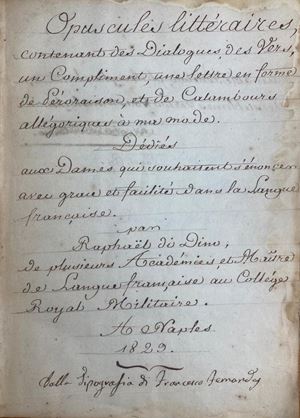 Opuscules littéraires,
contenant des Dialogues, des Vers,
un Compliment, une lettre en forme
de Péroraison, et de Calembours
allégoriques à ma mode.
Dédiés
aux Dames qui souhaitent s'énoncer
avec grace et facilité dans la Langue
française.
par
Raphaël di Dino,
de plusieurs Académies, et Maître
de Langue française au Collége
Royal Militaire.
A Naples
1829.
Dalla Tipografia di Francesco